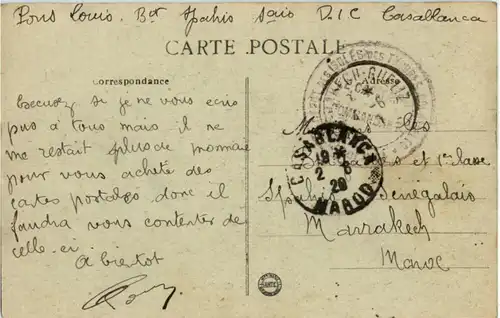 Pons Louis. Bet Spahis Sais D.I.C Casablanca
CARTE POSTALE
Correspondance
Adresse
Excusez si je ne vous ecris
pas à tous mais il ne
me restait plus de monnaie
pour vous acheté des
cartes postales donc il
faudra vous contenter de
celle-ci
A bientot
CASABLANCA
MAROC
et 1e classe
Spahis Sénégalais
Marrakech
Maroc